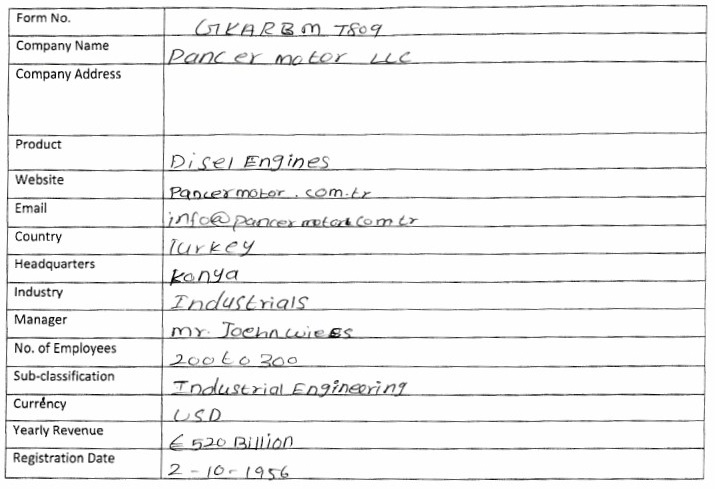 Form No. GKARBM T809
Company Name Pancer motor LLC
Company Address
Product Disel Engines
Website Pancermotor.com.tr
Email info@pancermotor.com.tr
Country Turkey
Headquarters Konya
Industry Industrials
Manager mr. Joehn wiess
No. of Employees 200 to 300
Sub-classification Industrial Engineering
Currency USD
Yearly Revenue € 520 Billion
Registration Date 2-10-1956